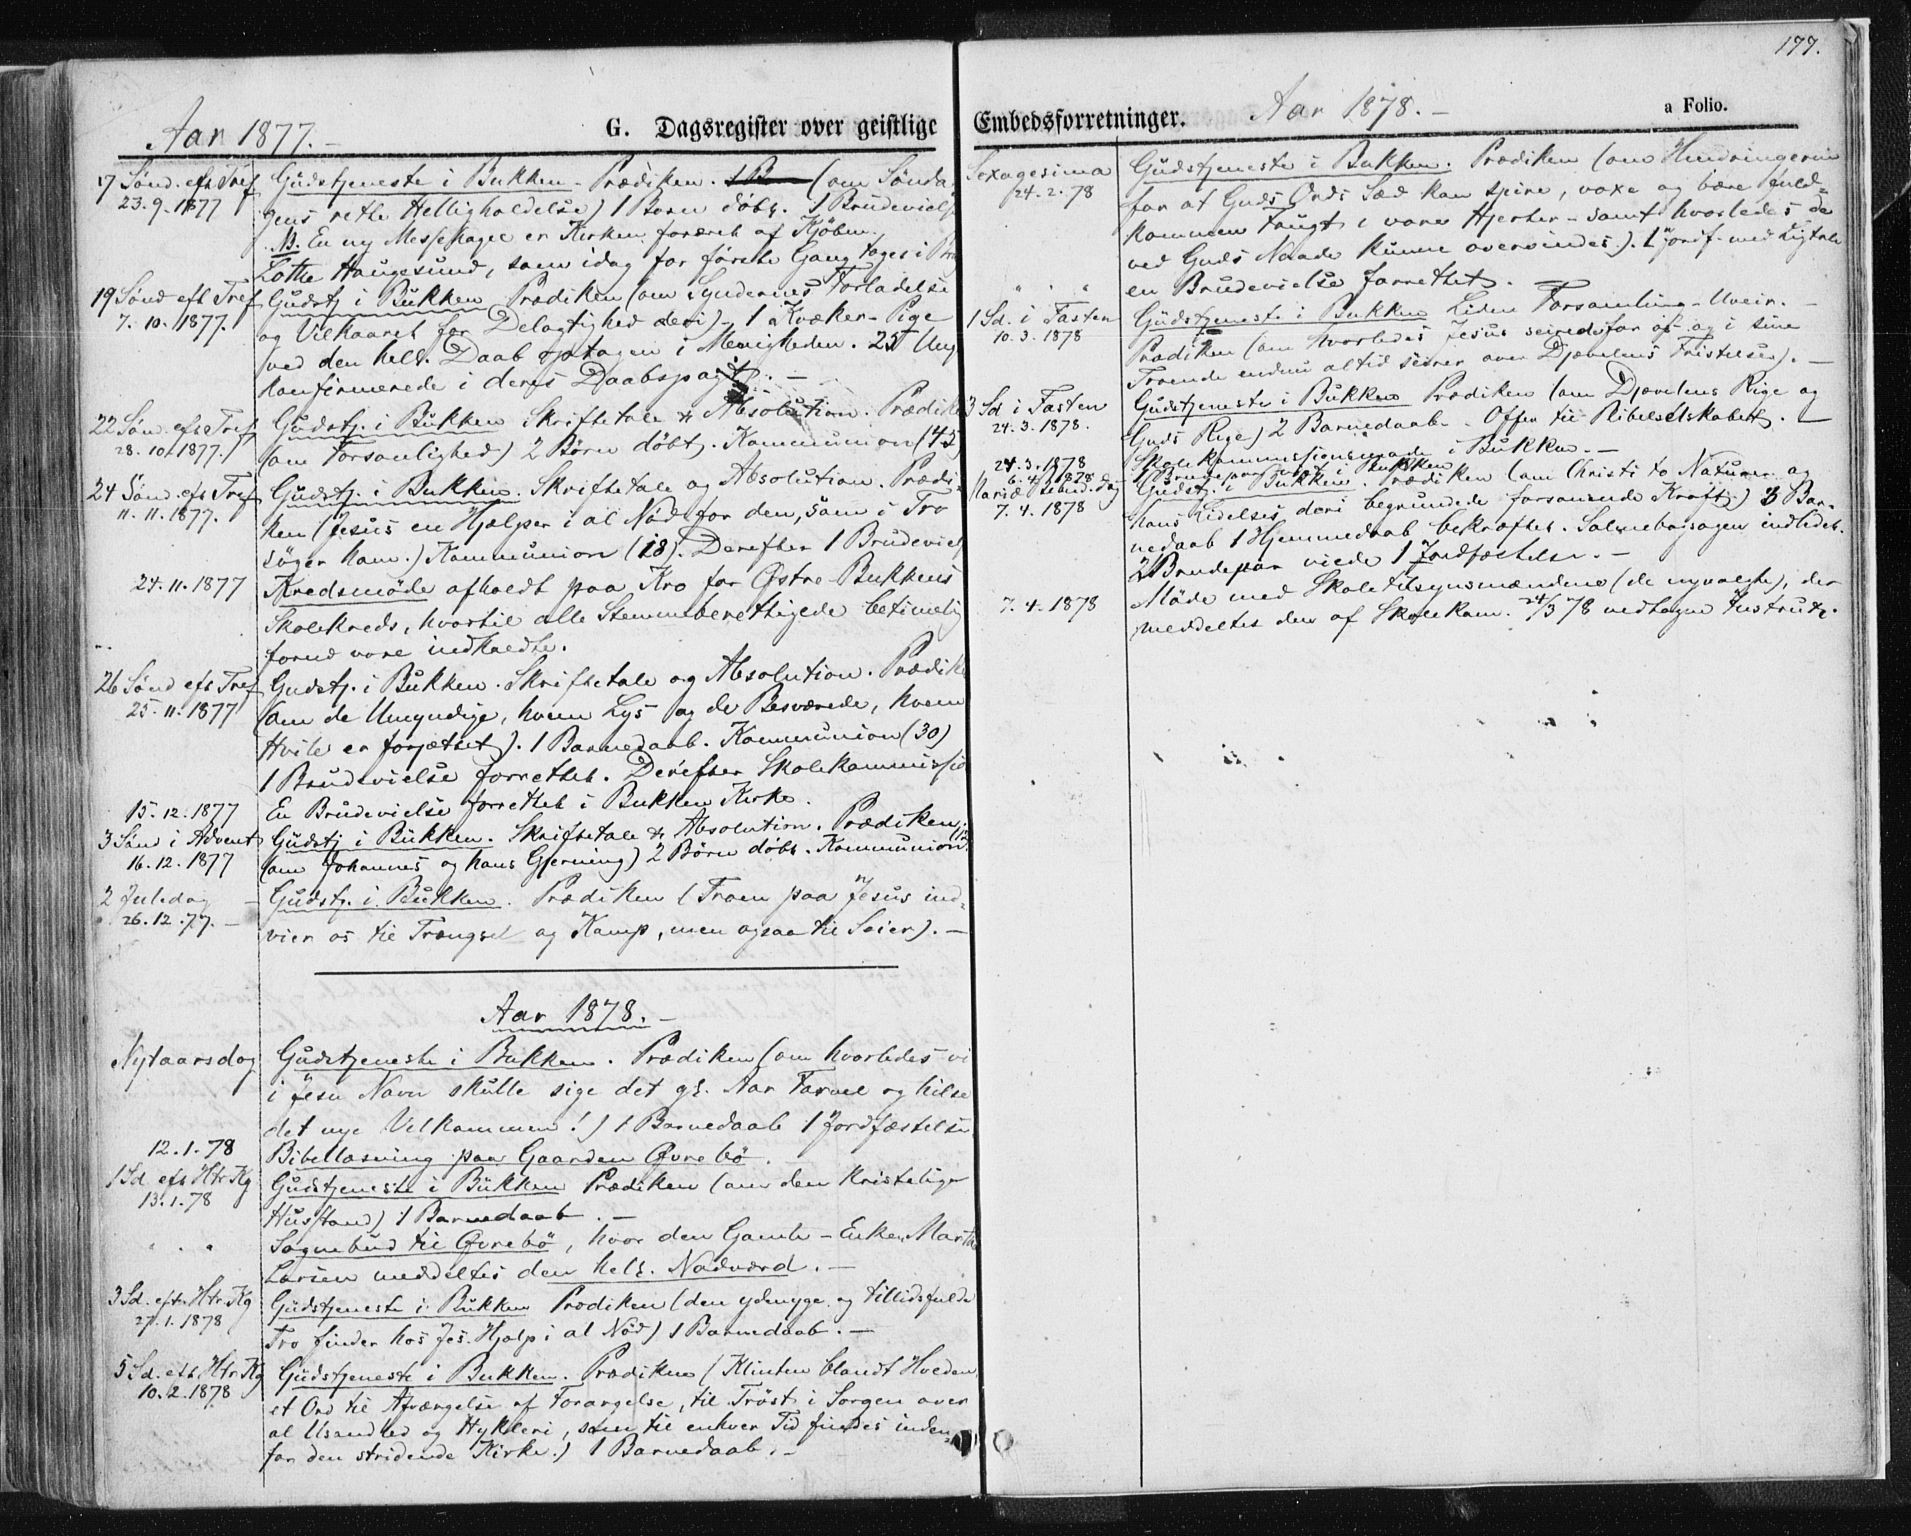 177.
G. Dagsregister over geistlige
Aar 1877.-
17 Sønd. eft Tref
23.9.1877
Gudstjeneste i Bukken. Prædiken. (om Sønda-
gens rette Helligholdelse) 1 Barn døbt. 1 Brudeviels
NB. En ny Messehagel er Kirken foræret af Kjöbm.
Lothe Haugesund, som idag for første Gang toges i
19 Sønd eft Tref
7.10.1877.
Gudstj i Bukken Prædiken (om Syndernes Forladelse
og Vilkaaret for Delagtighed deri) - 1 Kvæker-Pige
ved den hell. Daab optagen i Menigheden. 25 Ung
konfirmerede i deres Daabspagt. -
22 Sønd. eft Tref
28.10.1877.
Gudstj. i Bukken Skriftetale & Absolution. Prædike
(om Forsonlighed) 2 Børn døbt. Kommunion (45)
24 Sønd. eft Tref
11.11.1877.
Gudstj. i Bukken. Skriftetale og Absolution. Prædi-
ken (Jesus en Hjælper i al Nød for den, som i Tro
søger ham.) Kommunion (18). Derefter 1 Brudeviels
24.11.1877
Kredsmöde afholdt paa Kro for Østre Bukkens
Skolekreds, hvortil alle Stemmeberettigede betimelig
forud vare indkaldte.
26 Sønd eft Tref
25.11.1877
Gudstj. i Bukken. Skriftetale og Absolution. Prædike
(om de Umyndige, hvem Lys og de Besværede, hvem
Hvile er forjættet). 1 Barnedaab. Kommunion (30)
1 Brudevielse forrettet. Derefter Skolekommissio
15.12.1877
En Brudevielse forrettet i Bukken Kirke.
3 Sønd i Advent
16.12.1877
Gudstj i Bukken. Skriftetale & Absolution. Prædiken.
(om Johannes og hans Gjerning) 2 Börn döbt. Kommunion (12
2 Juledag
26.12.77. -
Gudstj. i Bukken. Prædiken (Troen paa Jesus ind-
vier os til Trængsel og Kamp, men ogsaa til Seier). -
Aar 1878.-
Nytaarsdag
Gudstjeneste i Bukken. Prædiken (om hvorledes vi
i Jesu Navn skulle sige det gl. Aar Farvel og hilse
det nye Velkommen!) 1 Barnedaab 1 Jordfæstelse
12.1.78
Bibellæsning paa Gaarden Øvrebö.
1 Sd. eft Htr Kg
13.1.78
Gudstjeneste i Bukken Prædiken (om den kristelige
Husstand) 1 Barnedaab. -
" " "
Sognebud til Øvrebö, hvor den Gamle - Enken Marthe
Larsen meddeltes den hell. Nadverd. -
3 Sd. eft. Htr Kg
27.1.1878
Gudstjeneste i Bukken Prædiken (den ydmyge og tillidsfulde
Tro finder hos Jes. Hjælp i al Nød) 1 Barnedaab. -
5 Sd. eft. Htr Kg
10.2.1878
Gudstjeneste i Bukken. Prædiken (Klinten blandt Hveden
et Ord til Afværgelse af Forargelse, til Trøst i Sorgen over
al Usandhed og Hykleri, som til enhver Tid findes inden-
for den stridende Kirke.) 1 Barnedaab. -
Embedsforretninger.
Aar 1878.-
a Folio.
Sexagesima
24.2.78
Gudstjeneste i Bukken. Prædiken (om Hindringerne
for at Guds Ords Sæd kan spire, voxe og bære fuld-
kommen Frugt i vore Hjerter - samt hvorledes de
ved Guds Naade kunne overvindes). 1 Jordf. med Ligtale
" " "
en Brudevielse forrettet.
1 Sd. i Fasten
10.3.1878
Gudstjeneste i Bukken Liden Forsamling - Uveir. -
Prædiken (om hvorledes Jesus seirede for os og i sine
Troende endnu altid seirer over Djævelens Fristelser). -
3 Sd i Fasten
24.3.1878.
Gudstjeneste i Bukken Prædiken (om Djævelens Rige og
Guds Rige) 2 Barnedaab. Offer til Bibelselskabet. -
24.3.1878
Skolekommissionsmøde i Bukken. -
6.4.1878
Brudepar viet i Bukken
Mariæ Bebud. Dag
7.4.1878
Gudstj. i Bukken. Prædiken (om Christi to Naturer og
hans Lidelses deri begrundede forsonende Kraft.) 3 Bar-
nedaab 1 Hjemmedaab bekræftet. Salmebogsagen indledet.
2 Brudepar viede 1 Jordfæstelse. -
7.4.1878
Möde med Skoletilsynsmændene (de nyvalgte), der
meddeltes den af Skolekom. 24/3 78 vedtagne Instrux.